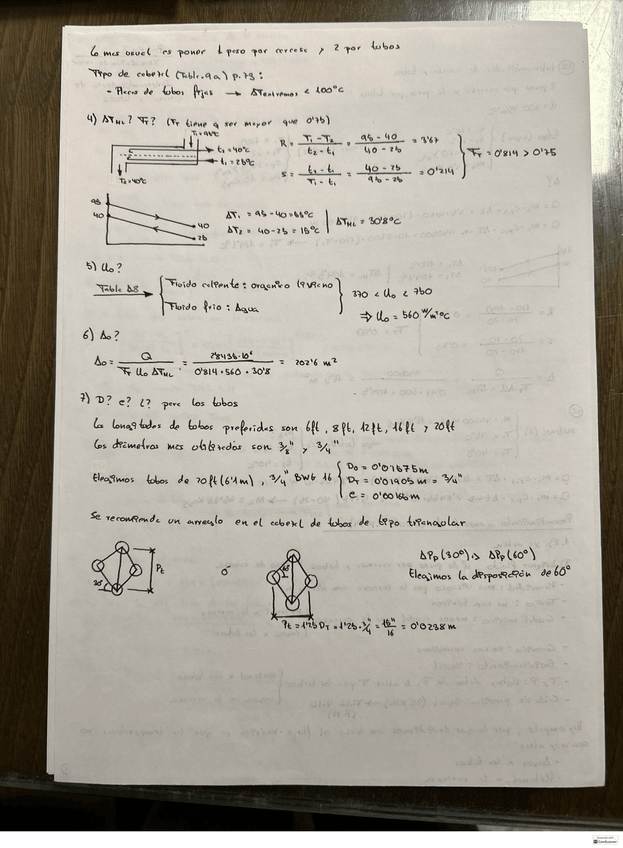 Lo mas usual es poner 1 paso por carcasa y 2 por tubos
Tipo de cabezal (Tabla 9a) p.73:
- Placas de tubos fijas → ΔTextremos < 100°C
4) ΔTML? FT? (FT tiene q ser mayor que 0'75)
T1=95°C
t2=40°C
t1=25°C
T2=40°C
R = T1-T2 / t2-t1 = 95-40 / 40-25 = 3'67
S = t2-t1 / T1-t1 = 40-25 / 95-25 = 0'214
FT = 0'814 > 0'75
95
40
40
25
ΔT1 = 95-40=55°C
ΔT2 = 40-25 = 15°C
ΔTML = 30'8°C
5) Uo?
Tabla A8
Fluido caliente: organico liviano
Fluido frio: Agua
370 < Uo < 750
⇒ Uo = 560 W/m²°C
6) Ao?
Ao = Q / FT Uo ΔTML = 2'8435·10⁶ / 0'814·560·30'8 = 202'6 m²
7) D? e? L? para los tubos
Las longitudes de tubos preferidas son 6ft, 8ft, 12ft, 16ft y 20ft
Los diametros mas utilizados son 3/8" y 3/4"
Elegimos tubos de 20ft (6'1m), 3/4" BWG 16
DT = 0'01905 m = 3/4"
e = 0'00165 m
Se recomienda un arreglo en el cabezal de tubos de tipo triangular
30°
Pt
ó
ΔPp(30°) > ΔPp(60°)
Elegimos la disposición de 60°
Pt = 1'25 DT = 1'25·3/4 = 15"/16 = 0'0238 m
CamScanner